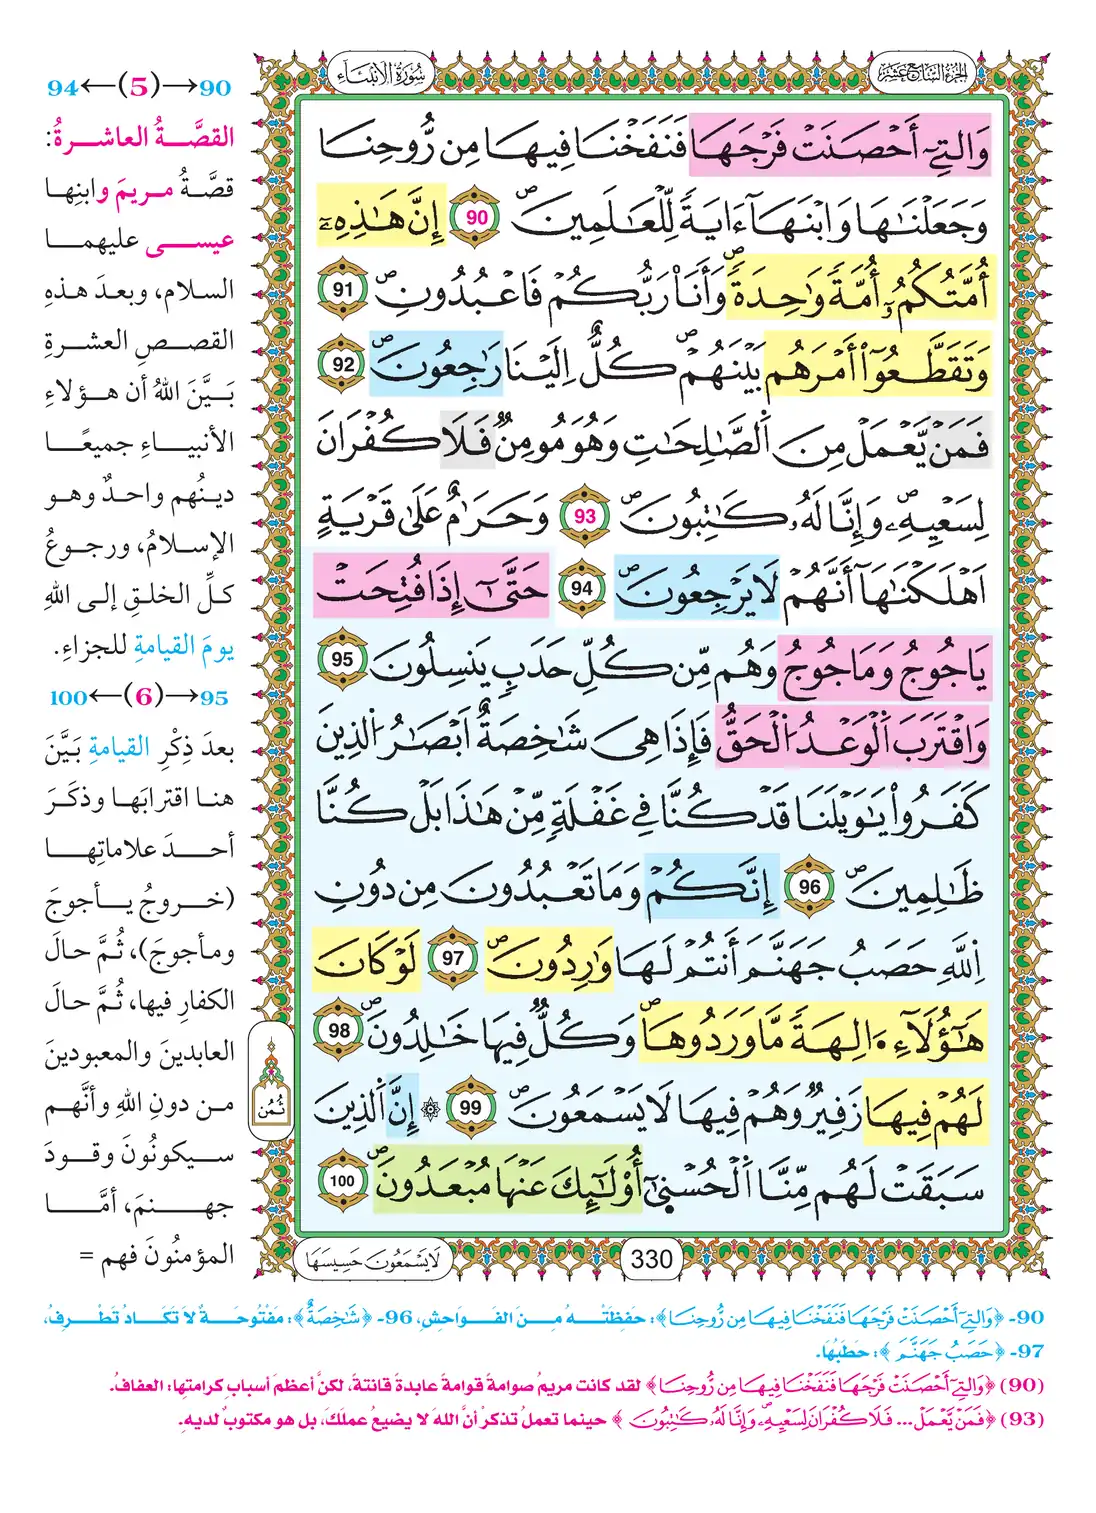 الجزء السابع عشر
سورة الأنبياء
وَالتِےٓ أَحْصَنَتْ فَرْجَهَا فَنَفَخْنَا فِيهَا مِن رُّوحِنَا
وَجَعَلْنَٰهَا وَابْنَهَآ ءَايَةً لِّلْعَٰلَمِينَۖ 90 إِنَّ هَٰذِهِۦٓ
أُمَّتُكُمُۥٓ أُمَّةً وَٰحِدَةًۖ وَأَنَا رَبُّكُمْ فَاعْبُدُونِۖ 91
وَتَقَطَّعُوٓاْ أَمْرَهُم بَيْنَهُمْۖ كُلٌّ اِلَيْنَا رَٰجِعُونَۖ 92
فَمَنْ يَّعْمَلْ مِنَ اَلصَّٰلِحَٰتِ وَهُوَ مُومِنٌ فَلَا كُفْرَانَ
لِسَعْيِهِۦۖ وَإِنَّا لَهُۥ كَٰتِبُونَۖ 93 وَحَرَٰمٌ عَلَىٰ قَرْيَةٍ
اَهْلَكْنَٰهَآ أَنَّهُمْ لَا يَرْجِعُونَۖ 94 حَتَّىٰٓ إِذَا فُتِحَتْ
يَاجُوجُ وَمَاجُوجُ وَهُم مِّن كُلِّ حَدَبٍ يَنسِلُونَ 95
وَاقْتَرَبَ اَلْوَعْدُ اُلْحَقُّ فَإِذَا هِيَ شَٰخِصَةٌ اَبْصَٰرُ اُلذِينَ
كَفَرُواْ يَٰوَيْلَنَا قَدْ كُنَّا فِے غَفْلَةٍ مِّنْ هَٰذَا بَلْ كُنَّا
ظَٰلِمِينَۖ 96 إِنَّكُمْ وَمَا تَعْبُدُونَ مِن دُونِ
اِللَّهِ حَصَبُ جَهَنَّمَ أَنتُمْ لَهَا وَٰرِدُونَۖ 97 لَوْ كَانَ
هَٰٓؤُلَآءِ اٰلِهَةً مَّا وَرَدُوهَاۖ وَكُلٌّ فِيهَا خَٰلِدُونَۖ 98
لَهُمْ فِيهَا زَفِيرٌ وَهُمْ فِيهَا لَا يَسْمَعُونَۖ 99 ۞ إِنَّ اَلذِينَ
سَبَقَتْ لَهُم مِّنَّا اَلْحُسْنَىٰٓ أُوْلَٰٓئِكَ عَنْهَا مُبْعَدُونَۖ 100
330
لَا يَسْمَعُونَ حَسِيسَهَا
ثُمُن
90→(5)←94
القصَّةُ العاشرةُ:
قصَّةُ مريمَ وابنِها
عيسى عليهما
السلام، وبعدَ هذهِ
القصصِ العشرةِ
بَيَّنَ اللهُ أن هؤلاءِ
الأنبياءِ جميعًا
دينُهم واحدٌ وهو
الإسلامُ، ورجوعُ
كلِّ الخلقِ إلى اللهِ
يومَ القيامةِ للجزاءِ.
95→(6)←100
بعدَ ذِكْرِ القيامةِ بَيَّنَ
هنا اقترابَها وذكَرَ
أحدَ علاماتِها
(خروجُ يأجوجَ
ومأجوجَ)، ثُمَّ حالَ
الكفارِ فيها، ثُمَّ حالَ
العابدينَ والمعبودينَ
من دونِ اللهِ وأنَّهم
سيكونُونَ وقودَ
جهنمَ، أمَّا
المؤمنُونَ فهم =
90- ﴿وَالتِےٓ أَحْصَنَتْ فَرْجَهَا فَنَفَخْنَا فِيهَا مِن رُّوحِنَا﴾: حَفِظَتْهُ مِنَ الفَوَاحِشِ، 96- ﴿شَٰخِصَةٌ﴾: مَفْتُوحَةٌ لَا تَكَادُ تَطْرِفُ،
97- ﴿حَصَبُ جَهَنَّمَ﴾: حَطَبُهَا.
(90) ﴿وَالتِےٓ أَحْصَنَتْ فَرْجَهَا فَنَفَخْنَا فِيهَا مِن رُّوحِنَا﴾ لقد كانت مريمُ صوامةً قوامةً عابدةً قانتةً، لكنَّ أعظمَ أسبابِ كرامتِها: العفافُ.
(93) ﴿فَمَنْ يَّعْمَلْ... فَلَا كُفْرَانَ لِسَعْيِهِۦۖ وَإِنَّا لَهُۥ كَٰتِبُونَ﴾ حينما تعملُ تذكرْ أنَّ اللهَ لا يضيعُ عملَكَ، بل هو مكتوبٌ لديهِ.